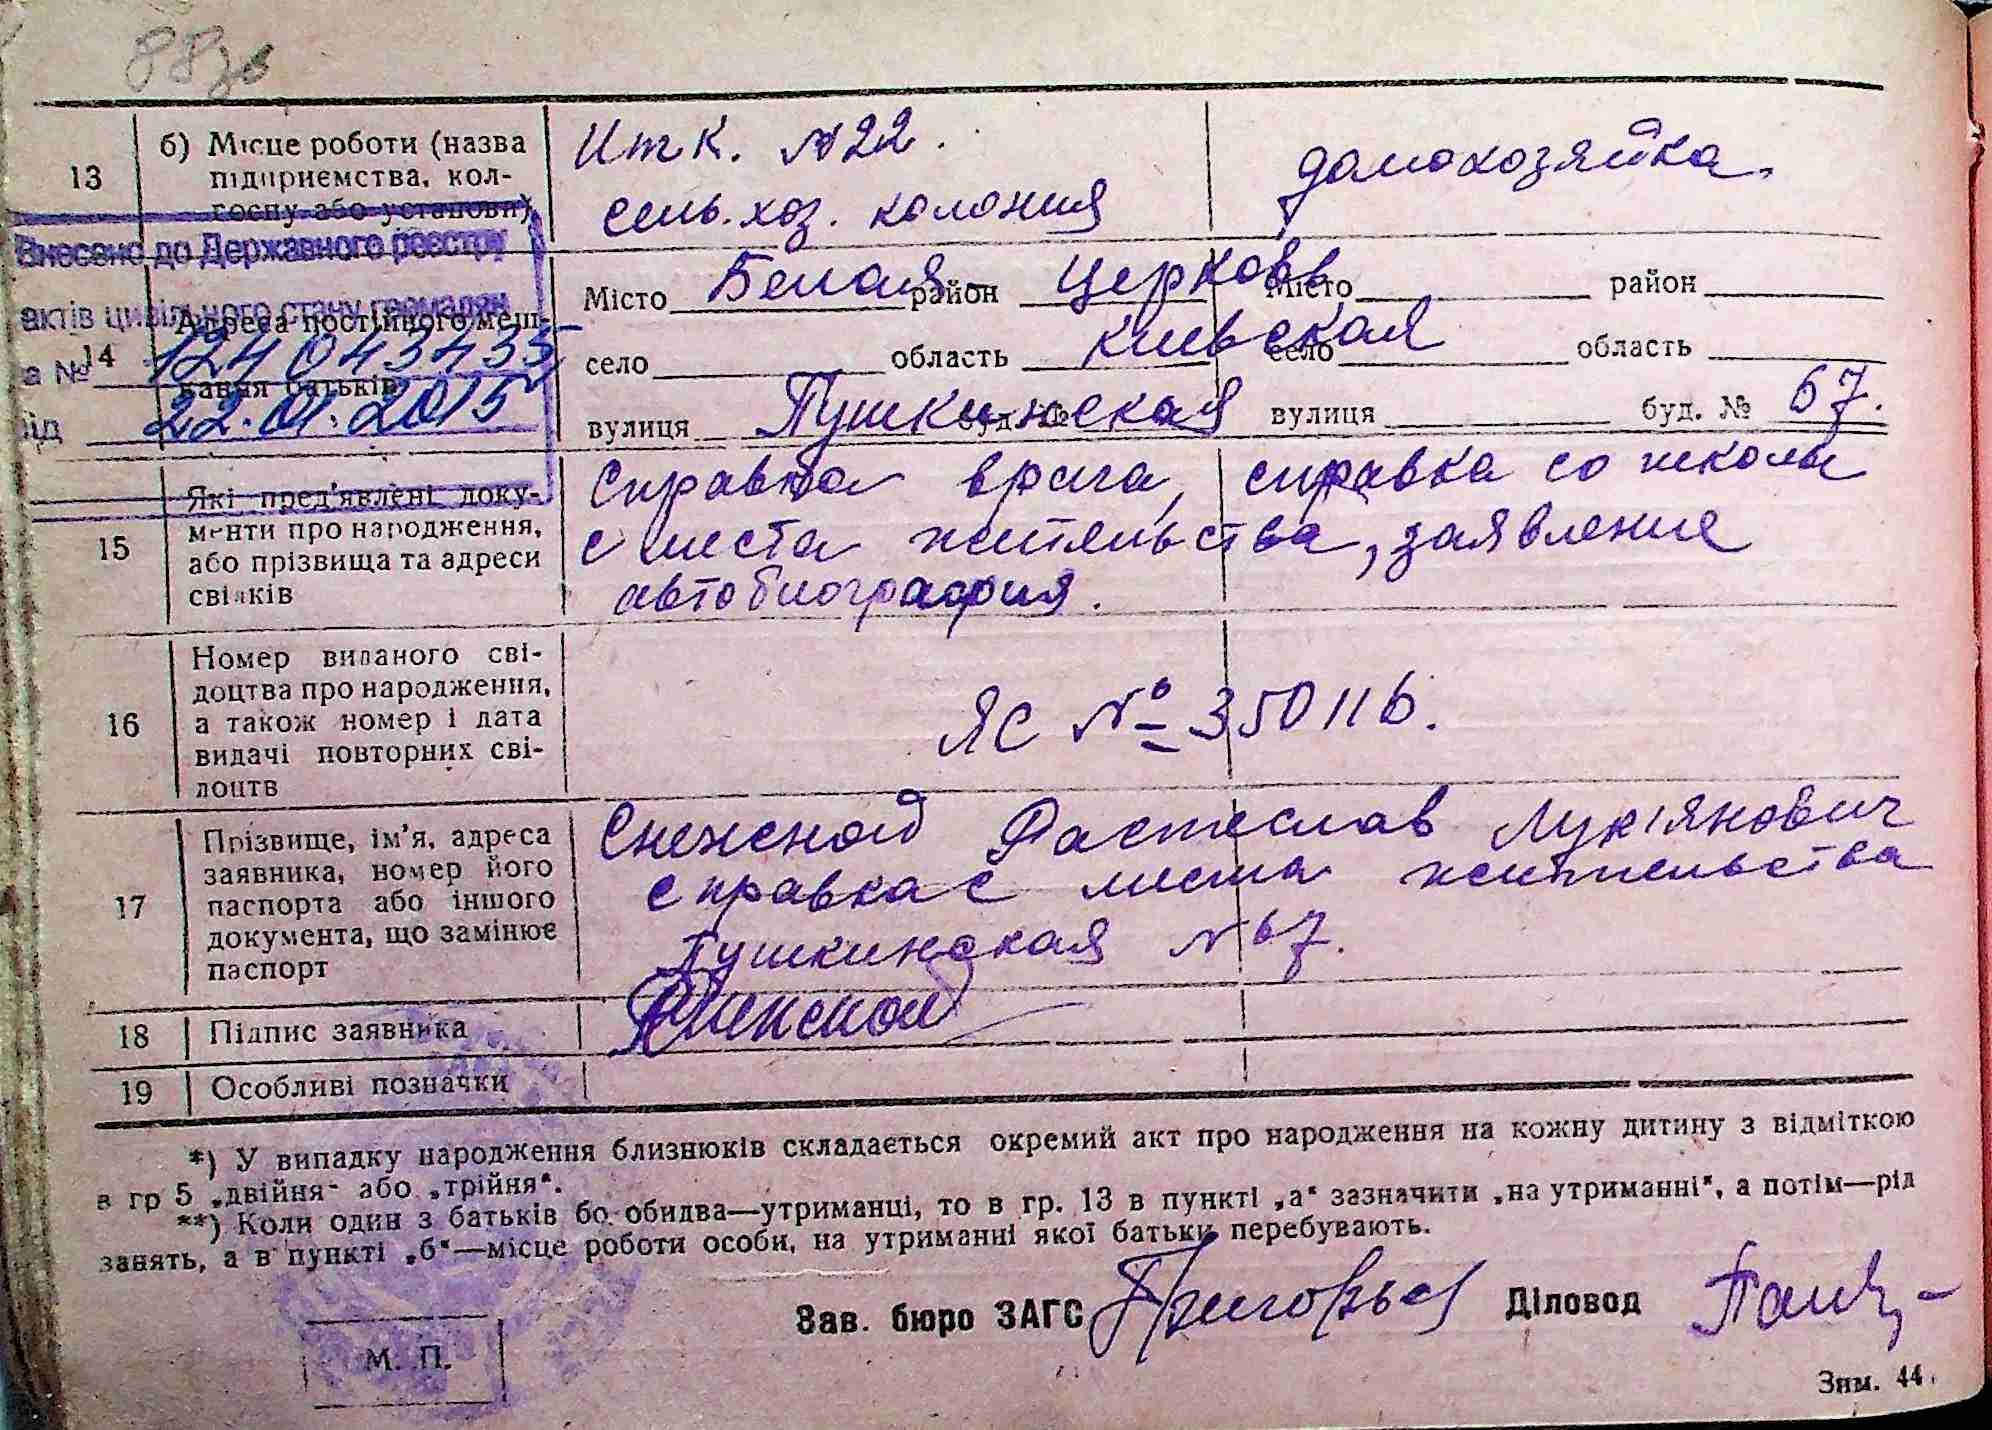 88зв
13 б) Місце роботи (назва підприємства, колгоспу або установи)
Итк. №22. сель.хоз. колония
домохозяйка.
Внесено до Державного реєстру
актів цивільного стану громадян
за № 12404343
від 22.01.2015
14 Адреса постійного мешкання батьків
Місто Белая район Церковь Місто район
село область Киевская село область
вулиця Пушкинская буд. № вулиця буд. № 67.
15 Які пред'явлені документи про народження, або прізвища та адреси свідків
Справка врача, справка со школы
с места жительства, заявление
автобиография.
16 Номер виданого свідоцтва про народження, а також номер і дата видачі повторних свідоцтв
ЯС № 350116.
17 Прізвище, ім'я, адреса заявника, номер його паспорта або іншого документа, що замінює паспорт
Снежной Растислав Лук'янович
справка с места жительства
Пушкинская №67.
18 Підпис заявника
19 Особливі позначки
*) У випадку народження близнюків складається окремий акт про народження на кожну дитину з відміткою
в гр 5 „двійня" або „трійня".
**) Коли один з батьків бо обидва—утриманці, то в гр. 13 в пункті „а" зазначити „на утриманні", а потім—рід
занять, а в пункті „б"—місце роботи особи, на утриманні якої батьки перебувають.
Зав. бюро ЗАГС Діловод
М. П.
Зим. 44.